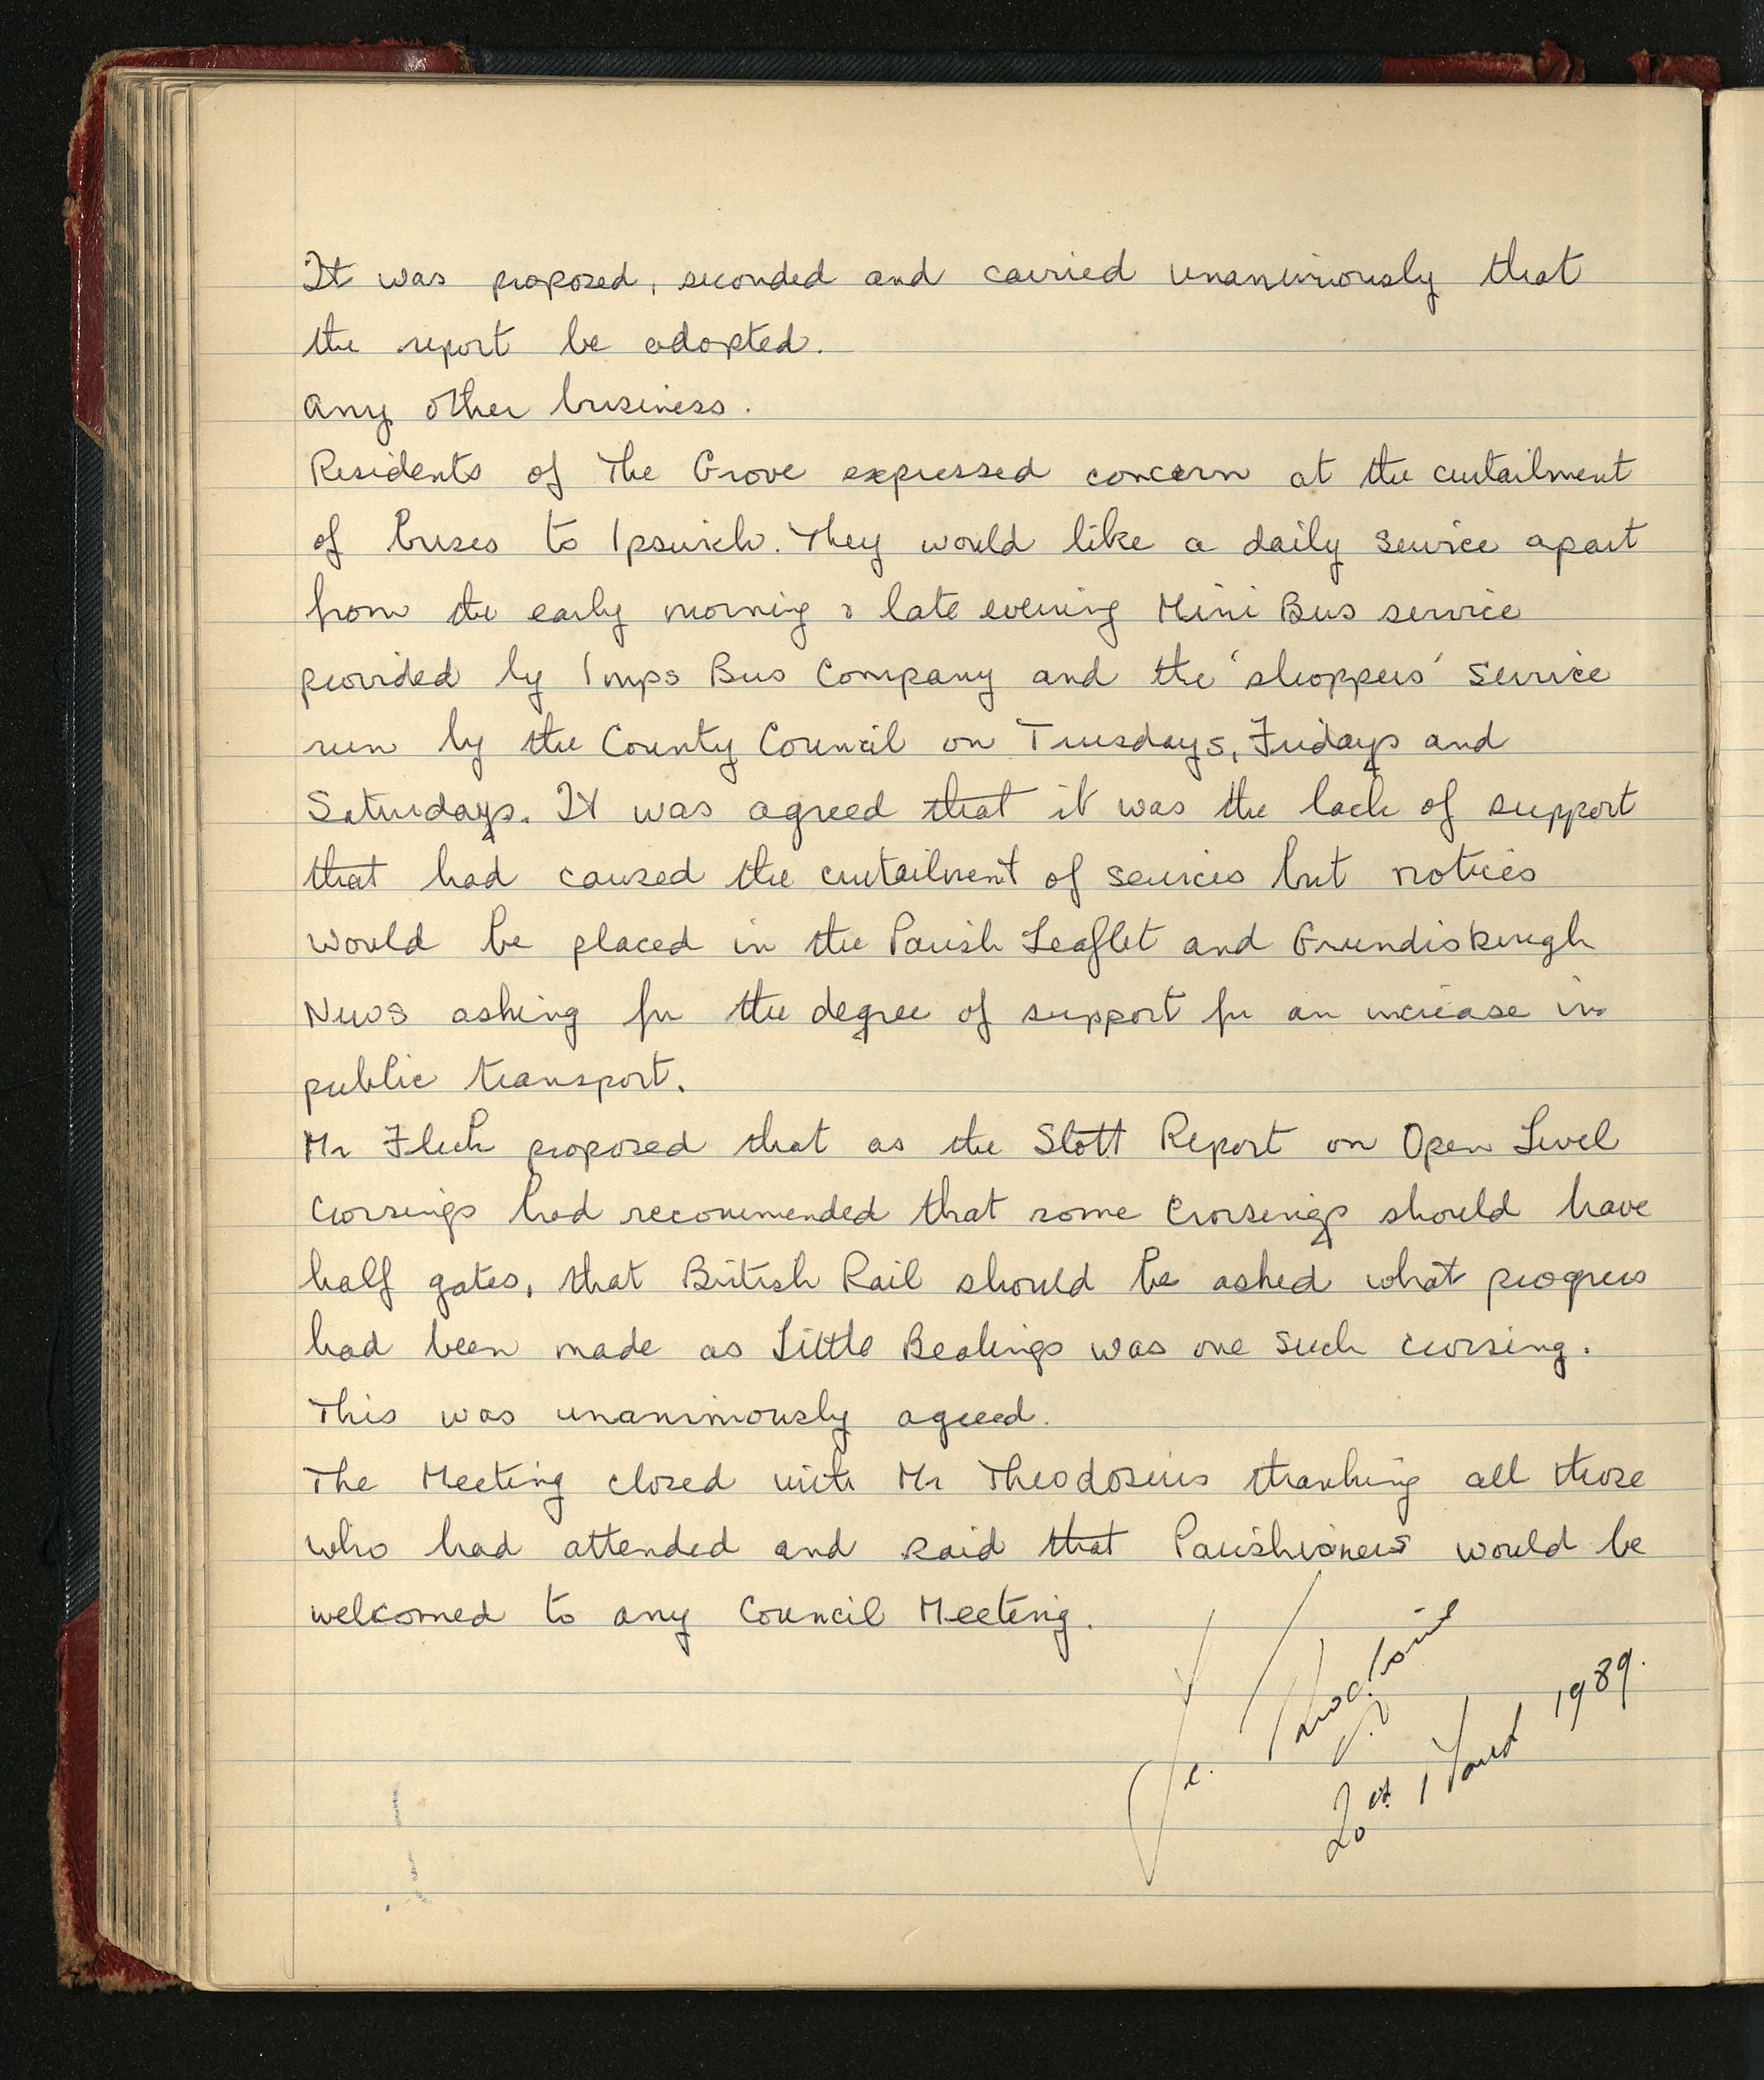 It was proposed, seconded and carried unanimously that
the report be adopted.
Any other business.
Residents of The Grove expressed concern at the curtailment
of buses to Ipswich. They would like a daily service apart
from the early morning & late evening Mini Bus service
provided by Imps Bus Company and the 'shoppers' service
run by the County Council on Tuesdays, Fridays and
Saturdays. It was agreed that it was the lack of support
that had caused the curtailment of services but notices
would be placed in the Parish Leaflet and Grundisburgh
News asking for the degree of support for an increase in
public transport.
Mr Fleck proposed that as the Stott Report on Open Level
Crossings had recommended that some Crossings should have
half gates, that British Rail should be asked what progress
had been made as Little Bealings was one such crossing.
This was unanimously agreed.
The Meeting closed with Mr Theodosius thanking all those
who had attended and said that Parishioners would be
welcomed to any Council Meeting.
1989.